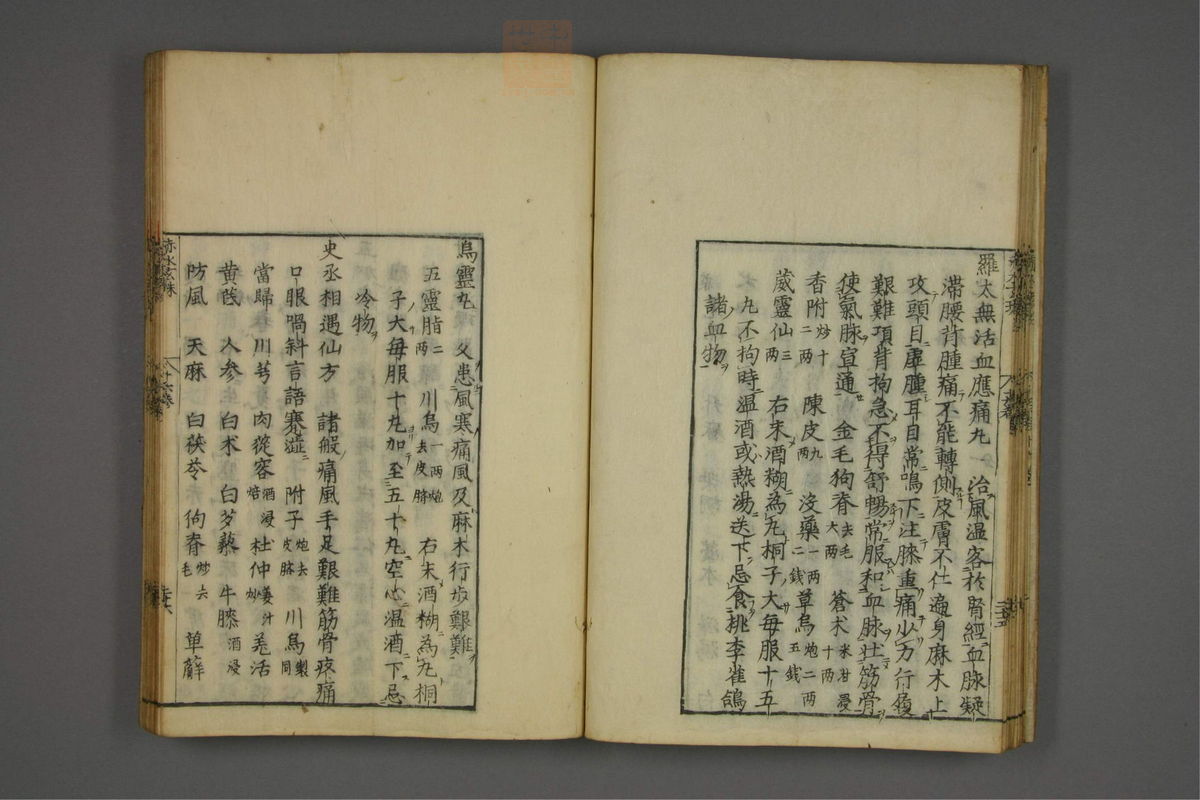 羅太無活血應痛丸 治風温客於腎經血脉凝
滞腰背腫痛不能轉側皮膚不仁遍身麻木上
攻頭目虚腫耳目常鳴下注膝重痛少力行履
艱難項背拘急不得舒暢常服和血脉壯筋骨
使氣脉宣通 金毛狗脊去毛大兩 蒼术米泔浸十兩
香附炒十二兩 陳皮九兩 没藥一兩二錢 草烏炮二兩五錢
葳靈仙三兩 右末酒糊為丸桐子大毎服十五
丸不拘時温酒或熱湯送下忌食桃李雀鴿
諸血物
烏靈丸 久患風寒痛風及麻木行歩艱難
五靈脂二兩 川烏一兩炮去皮臍 右末酒糊為丸桐
子大毎服十丸加至五十丸空心温酒下忌
冷物
史丞相遇仙方 諸般痛風手足艱難筋骨疼痛
口眼喎斜言語蹇澁 附子炮去皮臍 川烏製同
當歸 川芎 肉蓯容酒浸焙 杜仲姜汁炒 羗活
黄芪 人参 白术 白芍 藁 牛膝酒浸
防風 天麻 白茯苓 狗脊炒去毛 萆薢
赤水玄珠